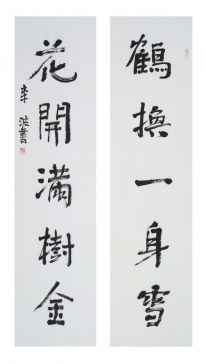 鶴撫一身雪
花開滿樹金
李波書